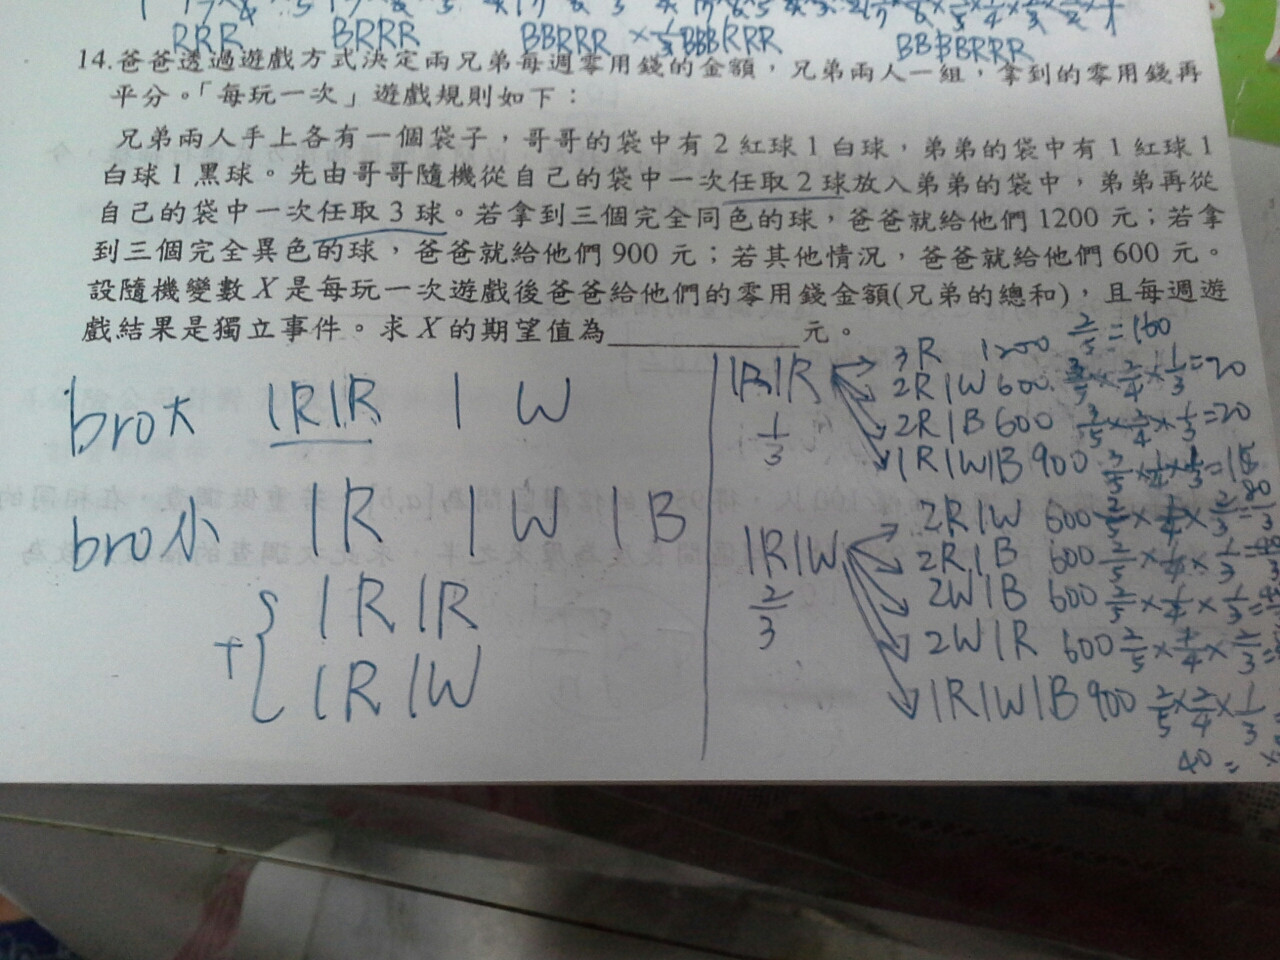 RRR BRRR BBRRR BBBRRR BBBBRRR
14.爸爸透過遊戲方式決定兩兄弟每週零用錢的金額，兄弟兩人一組，拿到的零用錢再
平分。「每玩一次」遊戲規則如下：
兄弟兩人手上各有一個袋子，哥哥的袋中有2紅球1白球，弟弟的袋中有1紅球1
白球1黑球。先由哥哥隨機從自己的袋中一次任取2球放入弟弟的袋中，弟弟再從
自己的袋中一次任取3球。若拿到三個完全同色的球，爸爸就給他們1200元；若拿
到三個完全異色的球，爸爸就給他們900元；若其他情況，爸爸就給他們600元。
設隨機變數X是每玩一次遊戲後爸爸給他們的零用錢金額(兄弟的總和)，且每週遊
戲結果是獨立事件。求X的期望值為____________元。
bro大 1R1R 1 W
bro小 1R 1W 1B
+{ 1R1R
1R1W
1R1R 1/3
3R 1200 2/5=160
2R1W 600 3/5×2/4×1/3=20
2R1B 600 3/5×2/4×1/3=20
1R1W1B 900
1R1W 2/3
2R1W 600
2R1B 600 2/5×1/4×1/3
2W1B 600 2/5×1/4×1/3
2W1R 600
1R1W1B 900 2/5×2/4×1/3
40=